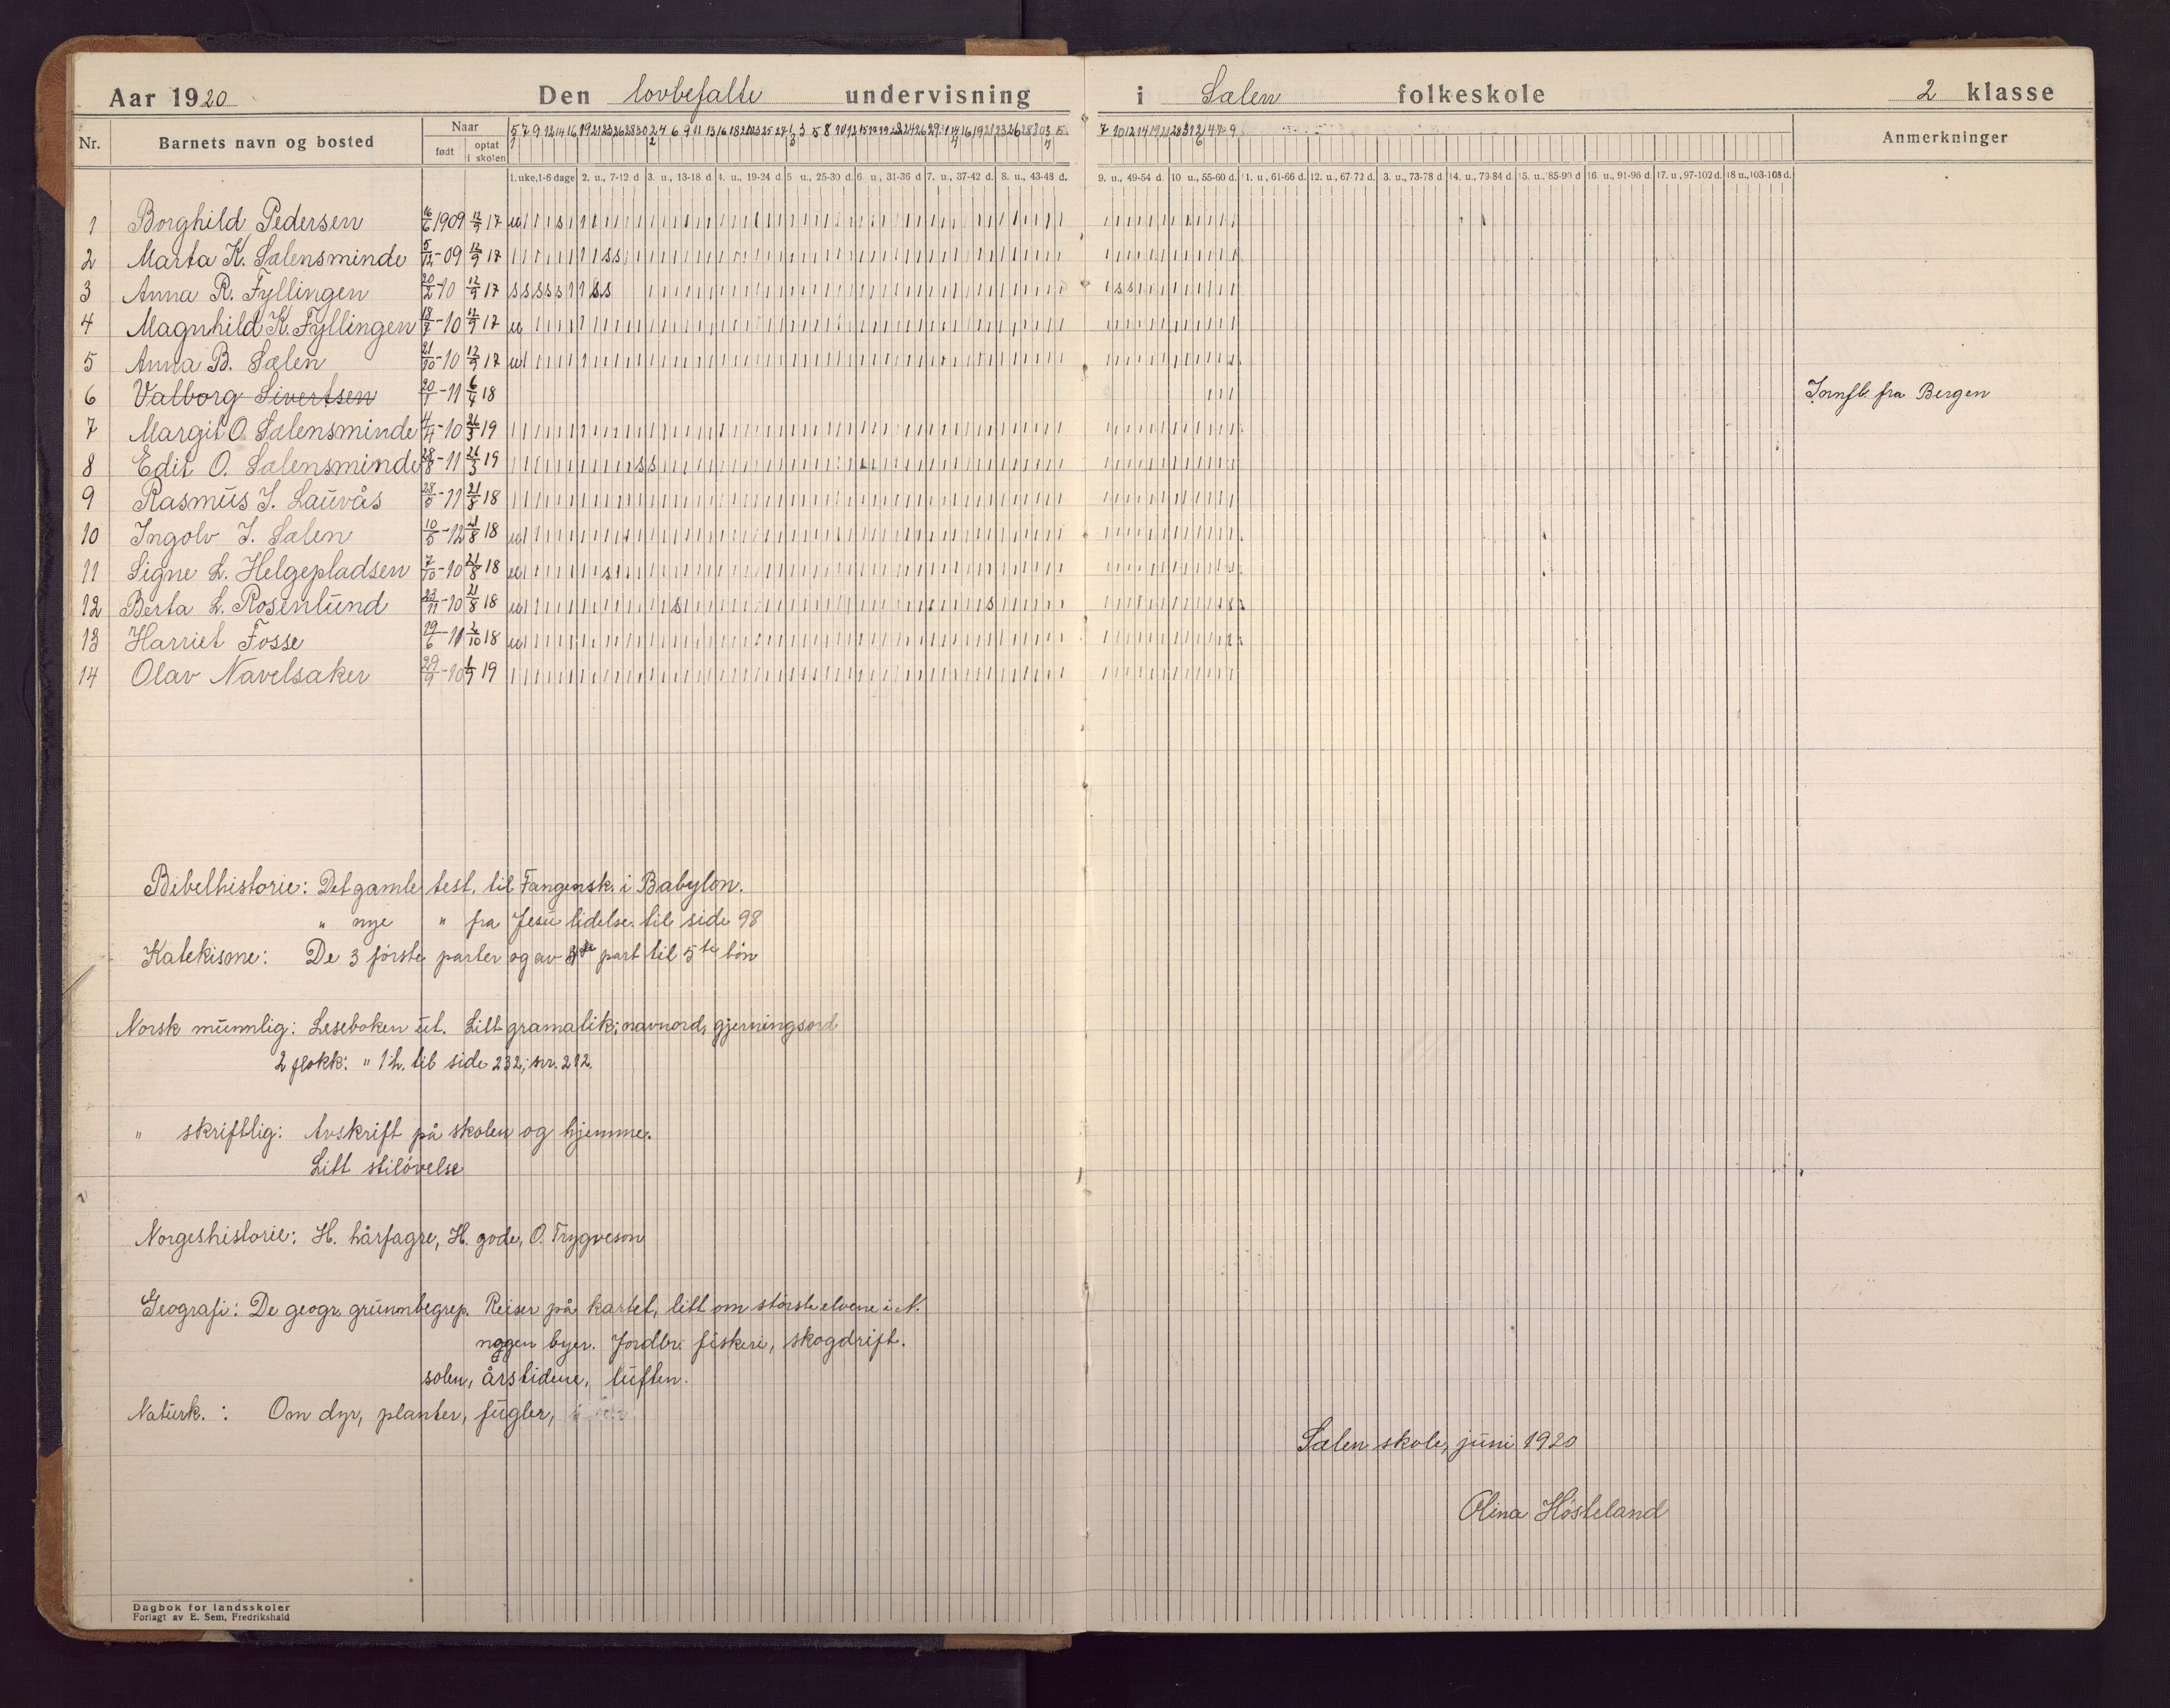 Aar 1920 Den lovbefalte undervisning i Sælen folkeskole 2 klasse
Nr. Barnets navn og bosted Naar født optat i skolen Anmerkninger
1. uke, 1-6 dage 2. u., 7-12 d 3. u., 13-18 d 4. u., 19-24 d. 5 u., 25-30 d. 6. u., 31-36 d 7. u., 37-42 d. 8. u., 43-48 d. 9. u., 49-54 d. 10 u., 55-60 d. 11. u., 61-66 d. 12. u., 67-72 d. 13. u., 73-78 d 14. u., 79-84 d 15. u., 85-90 d 16. u., 91-96 d. 17. u., 97-102 d. 18 u., 103-108 d.
1 Borghild Pedersen 16/6 1909 12/9 17
2 Marta K. Sælensminde 5/12-09 12/9 17
3 Anna R. Fyllingen 20/2-10 12/9 17
4 Magnhild K. Fyllingen 18/7-10 12/9 17
5 Anna B. Sælen 21/10-10 12/9 17
6 Valborg Sivertsen 20/1-11 6/4 18 Innfl. fra Bergen
7 Margit O. Sælensminde 4/4-10 26/3 19
8 Edit O. Sælensminde 28/8-11 26/3 19
9 Rasmus I. Lauvås 28/5-11 21/8 18
10 Ingolv I. Sælen 10/5-12 21/8 18
11 Signe L. Helgepladsen 7/10-10 21/8 18
12 Berta L. Rosenlund 23/11-10 21/8 18
13 Harriet Fosse 19/6-11 2/10 18
14 Olav Navelsaker 29/9-10 1/9 19
Bibelhistorie: Det gamle test. til Fangensk. i Babylon.
" nye " fra Jesu lidelse til side 98
Katekisme: De 3 første parter og av 3de part til 5te bön
Norsk munnlig: Leseboken ut. Litt gramatik; navnord, gjerningsord
2 flokk: " 1 h. til side 232, nr. 212.
" skriftlig: Avskrift på skolen og hjemme.
Litt stilövelse
Norgeshistorie: H. hårfagre, H. gode, O. Trygveson
Geografi: De geogr. grunnbegrep. Reiser på kartet, litt om störste elvene i N.
noggen byer. Jordbr. fiskeri, skogdrift.
solen, årstidene, luften.
Naturk.: Om dyr, planter, fugler,
Sælen skole, juni 1920
Olina Hösteland
Dagbok for landsskoler
Forlagt av E. Sem, Fredrikshald